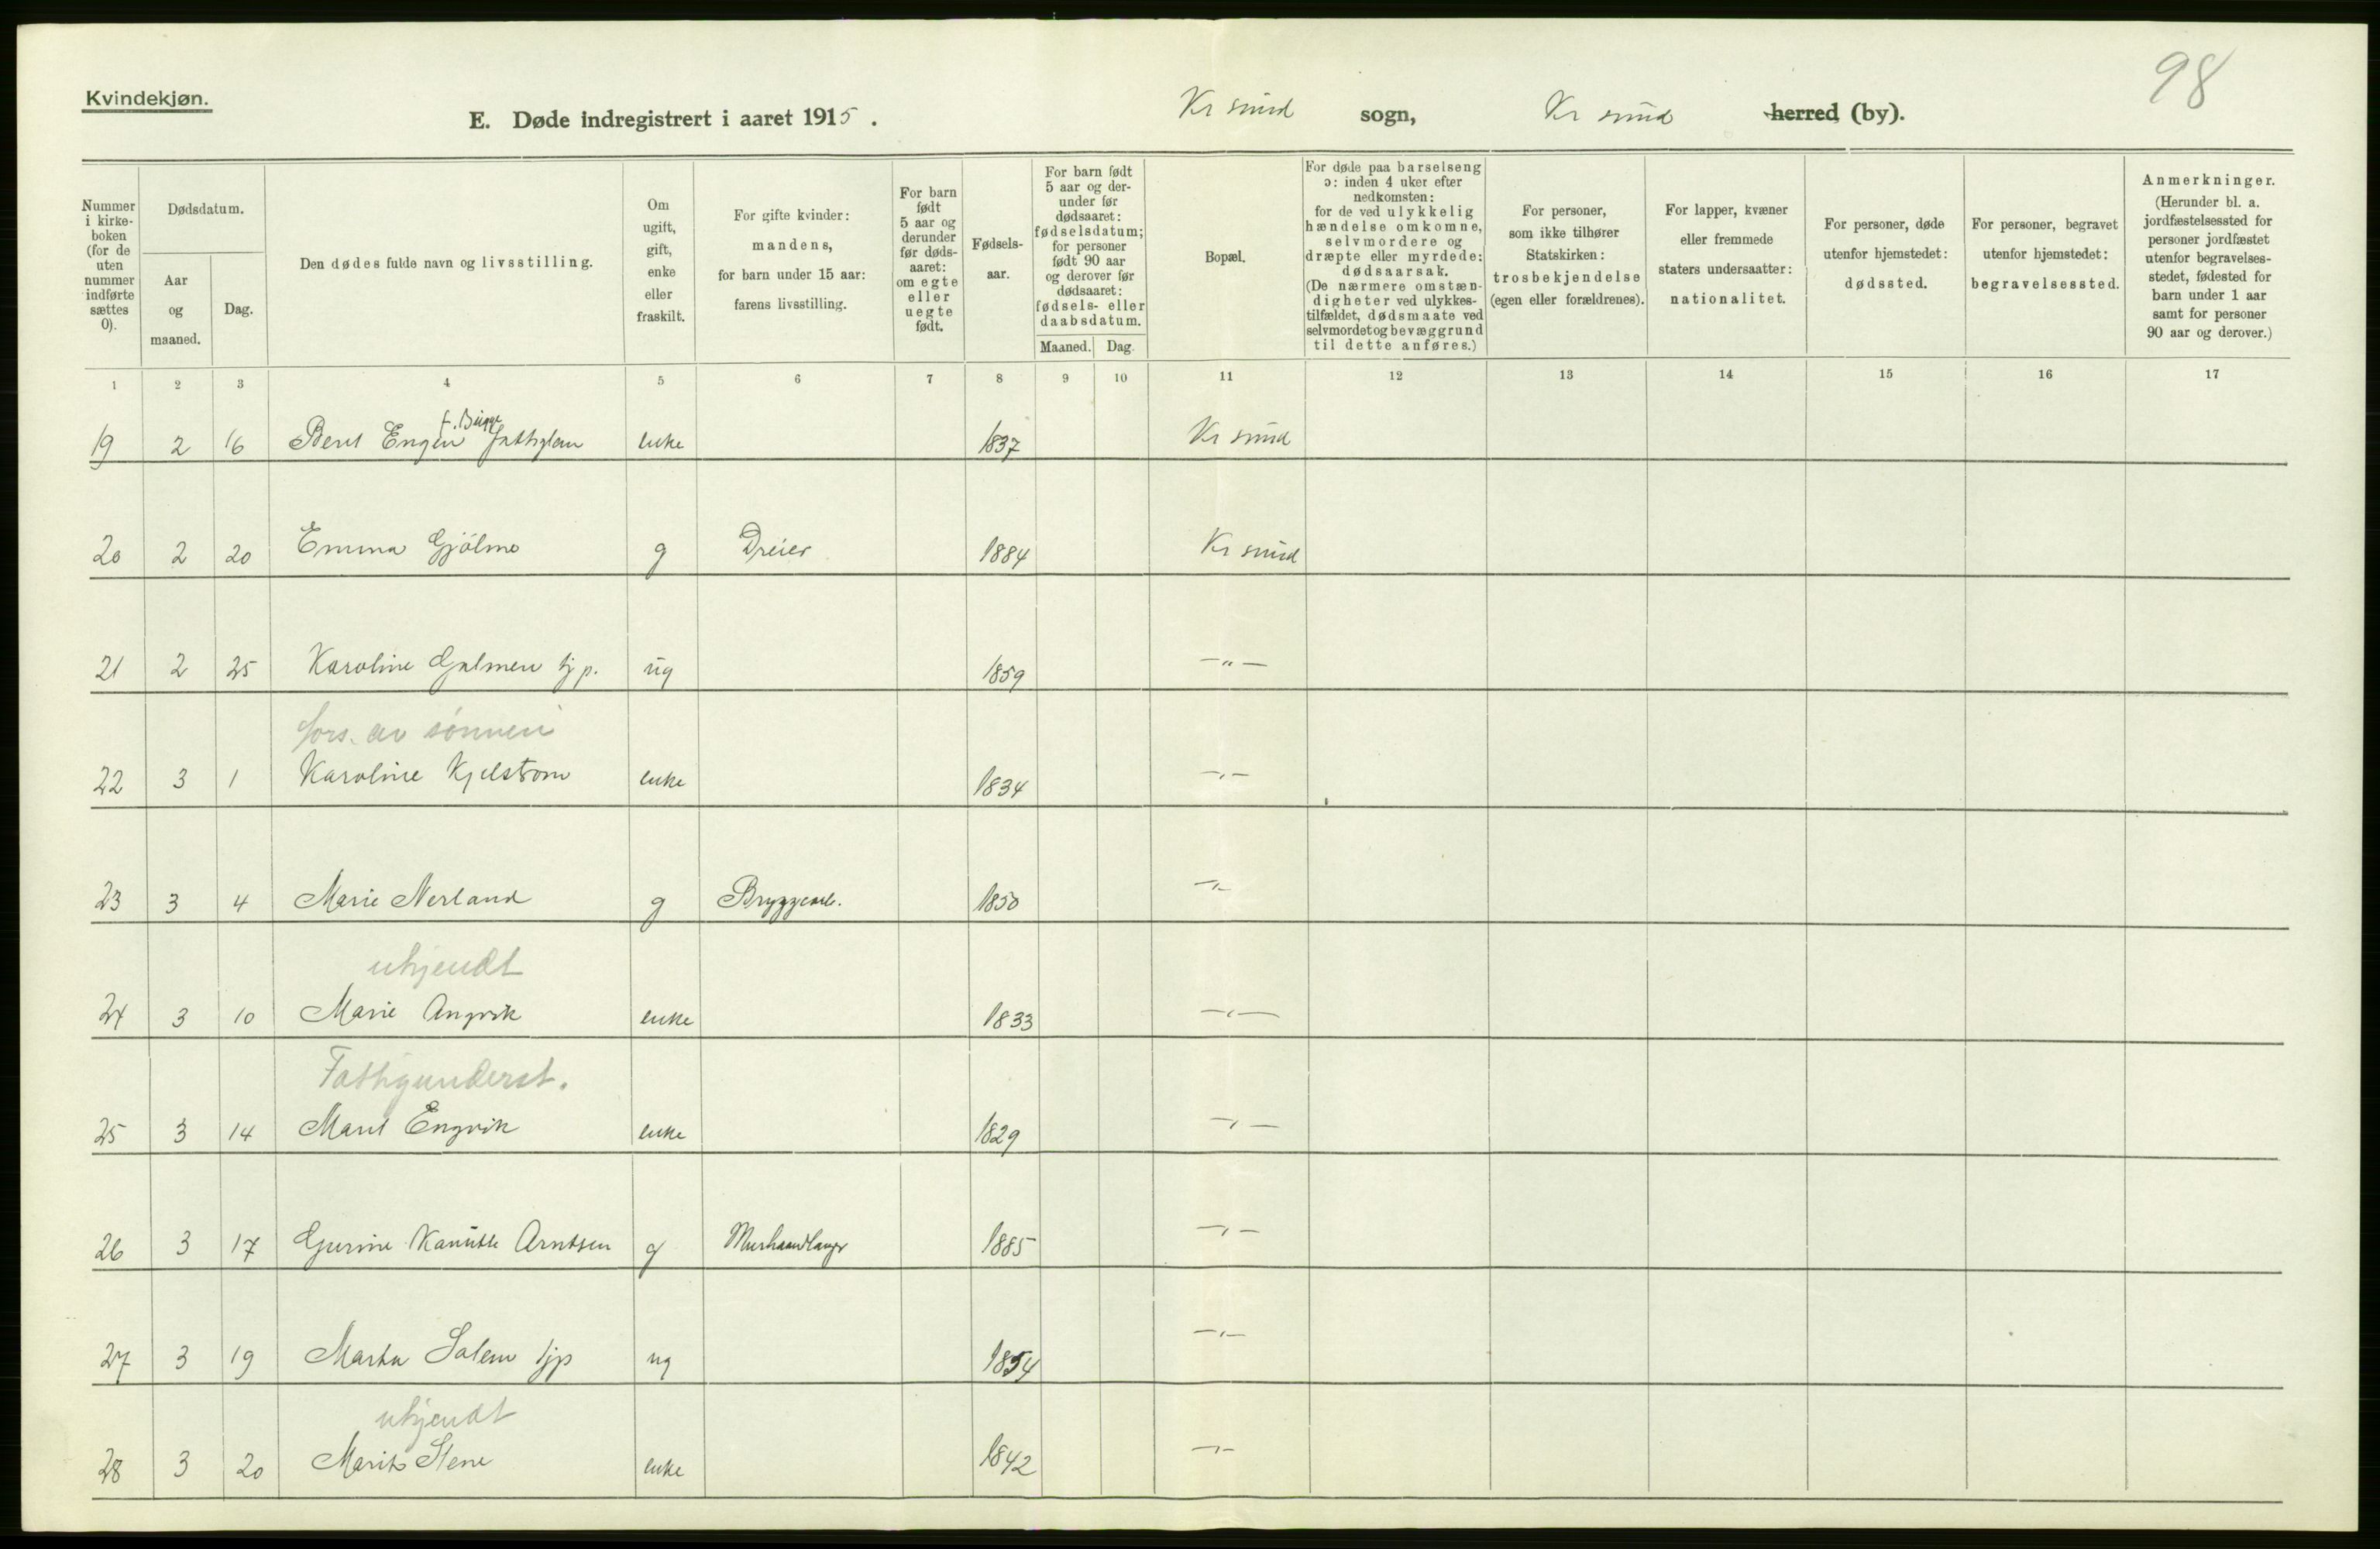 98
Kvindekjøn.
E. Døde indregistrert i aaret 1915. Kr sund sogn, Kr sund herred (by).
Nummer i kirke- boken (for de uten nummer indførte sættes 0).
Dødsdatum.
Aar og maaned.
Dag.
Den dødes fulde navn og livsstilling.
Om ugift, gift, enke eller fraskilt.
For gifte kvinder: mandens, for barn under 15 aar: farens livsstilling.
For barn født 5 aar og derunder før døds- aaret: om egte eller uegte født.
Fødsels- aar.
For barn født 5 aar og der- under før dødsaaret: fødselsdatum; for personer født 90 aar og derover før dødsaaret: fødsels- eller daabsdatum.
Maaned. Dag.
Bopæl.
For døde paa barselseng ɔ: inden 4 uker efter nedkomsten: for de ved ulykkelig hændelse omkomne, selvmordere og dræpte eller myrdede: dødsaarsak. (De nærmere omstæn- digheter ved ulykkes- tilfældet, dødsmaate ved selvmordet og bevæggrund til dette anføres.)
For personer, som ikke tilhører Statskirken: trosbekjendelse (egen eller forældrenes).
For lapper, kvæner eller fremmede staters undersaatter: nationalitet.
For personer, døde utenfor hjemstedet: dødssted.
For personer, begravet utenfor hjemstedet: begravelsessted.
Anmerkninger. (Herunder bl. a. jordfæstelsessted for personer jordfæstet utenfor begravelses- stedet, fødested for barn under 1 aar samt for personer 90 aar og derover.)
1 2 3 4 5 6 7 8 9 10 11 12 13 14 15 16 17
19 2 16 Berit Engen enke 1837 Kr sund
20 2 20 Emma Gjölme g Dreier 1884 Kr sund
21 2 25 Karoline tj p. ug 1859 —"—
fors. av sönnen
22 3 1 Karoline Kjelstrom enke 1834 —"—
23 3 4 Marie Nerland g Bryggearb. 1850 —"—
ukjendt
24 3 10 Marie Angvik enke 1833 —"—
Fattigunderst.
25 3 14 Marit Engvik enke 1829 —"—
26 3 17 Gurine Kanutte Arntsen g Murhaandlanger 1885 —"—
27 3 19 Marta Solem tjp ug 1854 —"—
ukjendt
28 3 20 Marit Stene enke 1842 —"—